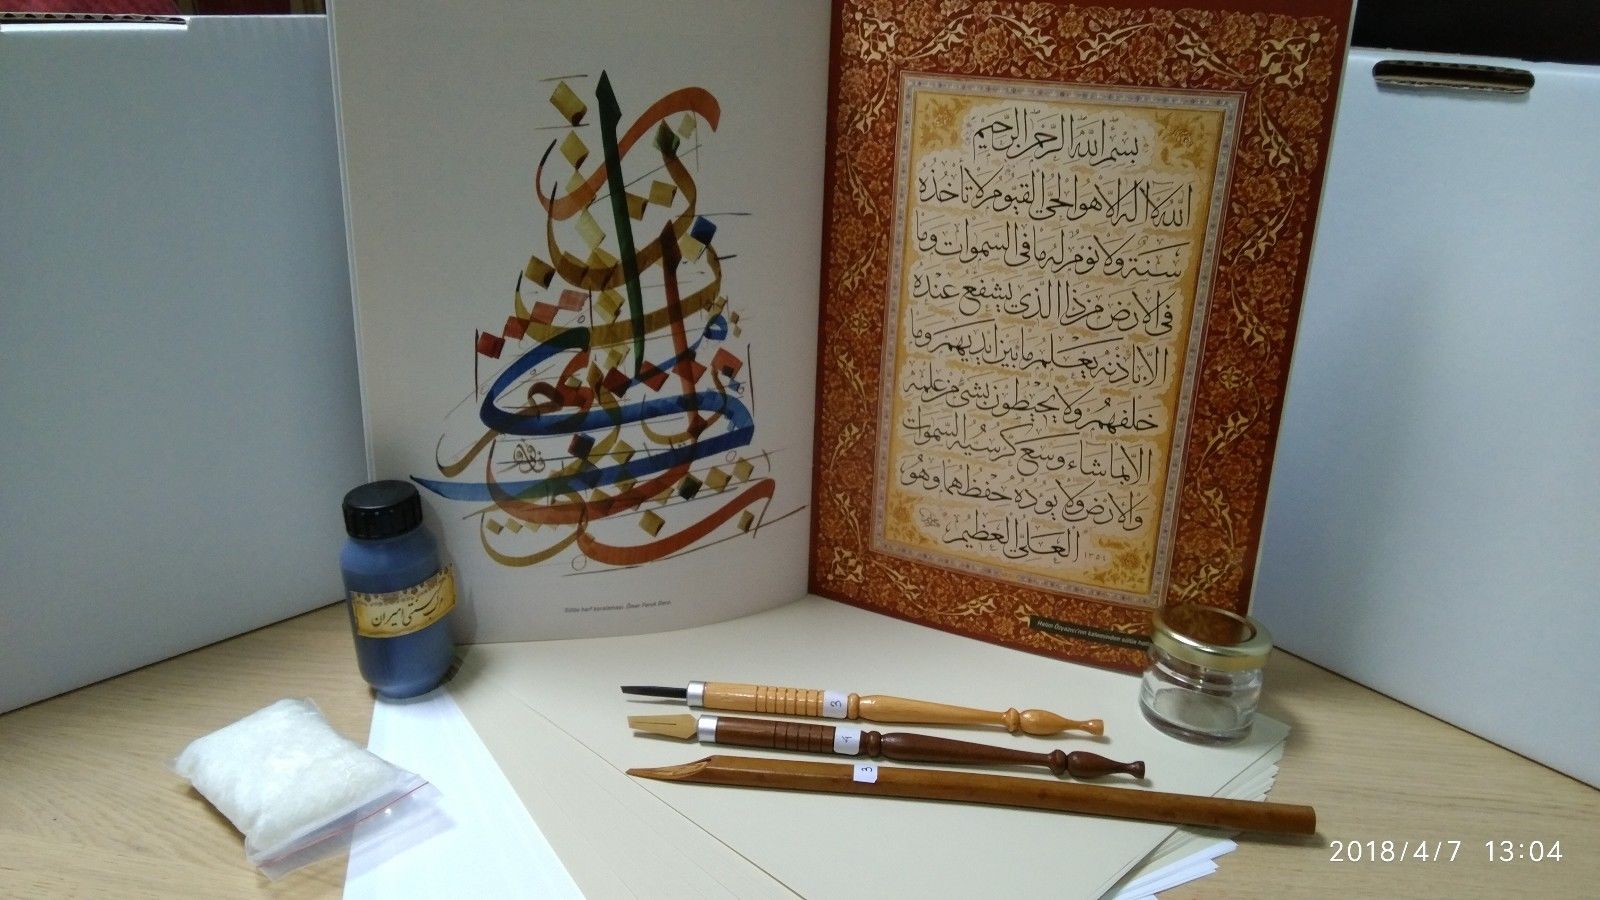 بسم الله الرحمن الرحيم
الله لا اله الا هو الحي القيوم لا تأخذه
سنة ولا نوم له ما فى السموات وما
فى الارض من ذا الذي يشفع عنده
الا باذنه يعلم ما بين ايديهم وما
خلفهم ولا يحيطون بشئ من علمه
الا بما شاء وسع كرسيه السموات
والارض ولا يوده حفظهما وهو
العلي العظيم
١٣٥٤
Sülüs harf karalaması. Ömer Faruk Dere.
Halim Özyazıcı'nın kaleminden sülüs hat
مرکب سنتی امیران
3
4
3
2018/4/7 13:04